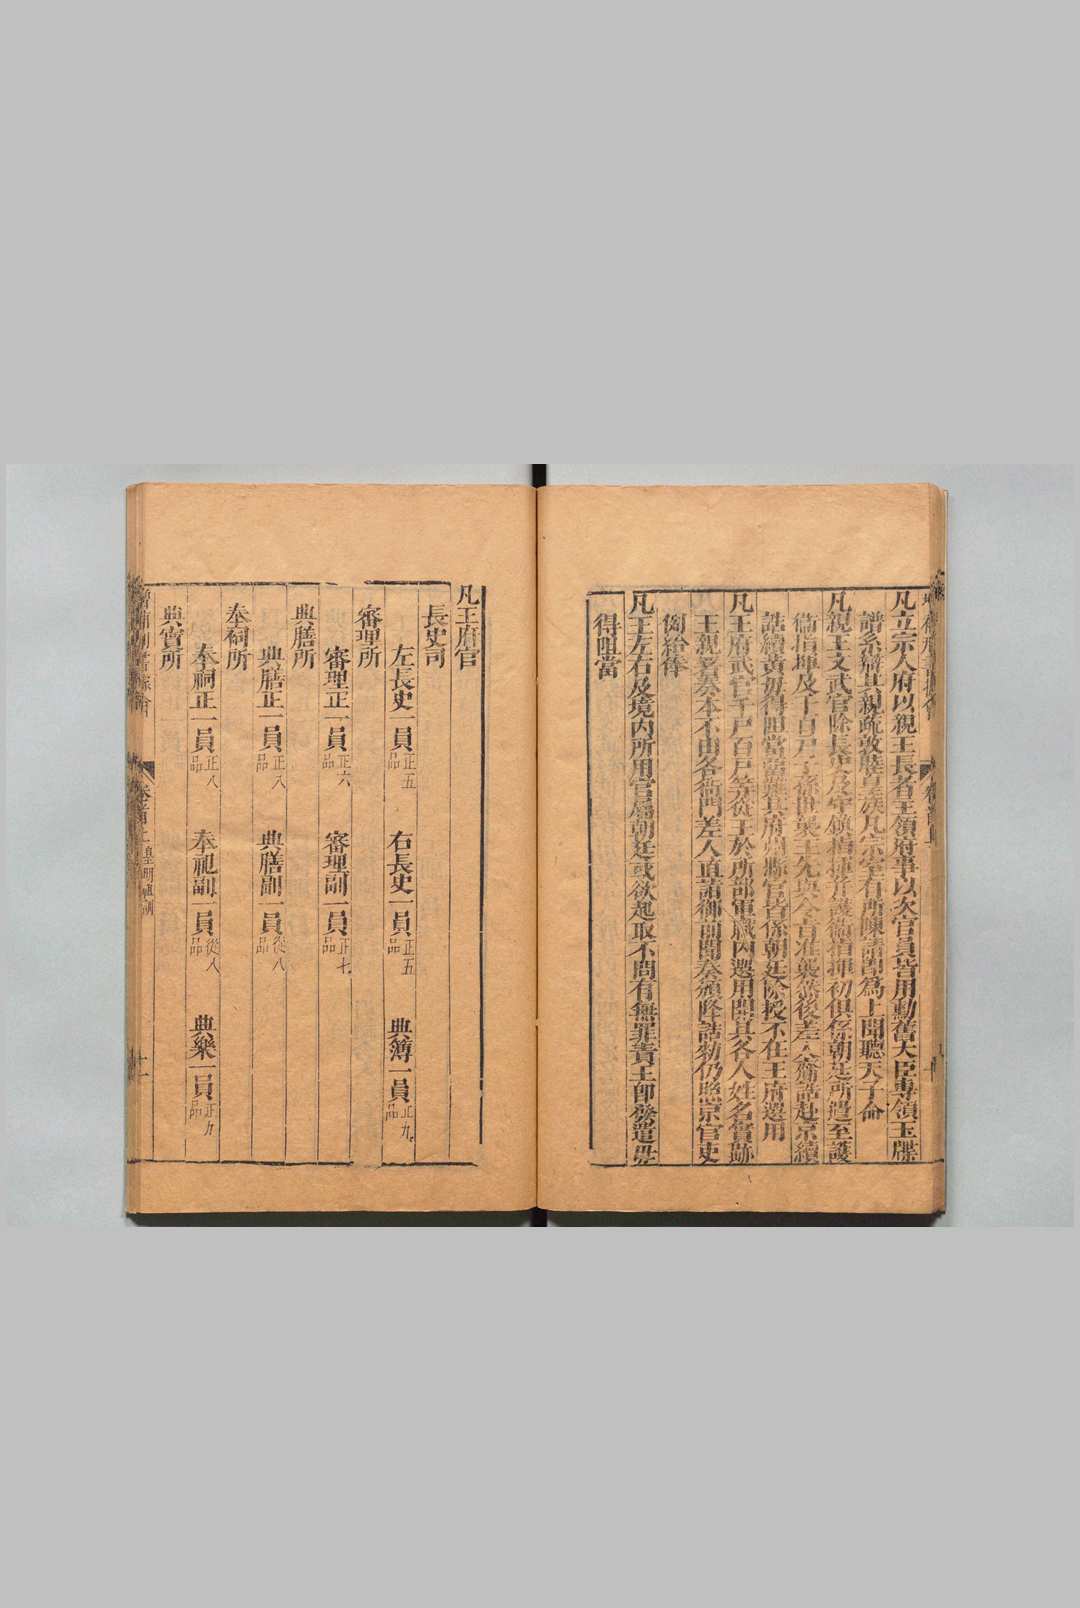 凡立宗人府以親王長者主領府事以次官員皆用勳舊大臣專領玉牒
譜系辨其親疏敦睦皇族凡宗室有所陳請即為上聞聽天子命
凡親王文武官除長史及守鎮指揮并護衛指揮初俱係朝廷所遣至護
衛指揮及千百戶子孫世襲王先與令旨准襲然後差人齎誥赴京續
誥續黃毋得阻當當該其府州縣官皆係朝廷除授不在王府選用
凡王府武官千戶百戶等從王於所部軍職內選用開其各人姓名實跡
王親署奏本不由各衙門差人直詣御前聞奏頒降誥勑仍照京官支
給俸
凡王左右及境內所用官屬朝廷或欲起取不問有無罪責王即發遣毋
得阻當
凡王府官
長史司
左長史一員正五品 右長史一員正五品 典簿一員正九品
審理所
審理正一員正六品 審理副一員正七品
典膳所
典膳正一員正八品 典膳副一員從八品
奉祠所
奉祠正一員正八品 奉祀副一員從八品 典樂一員正九品
典寶所
卷首上 皇明祖訓 十一